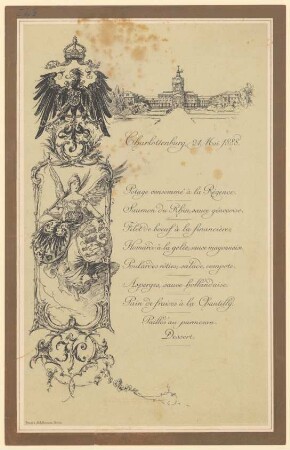 Charlottenburg, 24. Mai 1888.
Potage consommé à la Régence.
Saumon du Rhin, sauce génevoise.
Filet de boeuf à la financière.
Homard à la gelée, sauce mayonnaise.
Poulardes rôties, salade, compote.
Asperges, sauce hollandaise.
Pain de fraises à la Chantilly.
Pailles au parmesan.
Dessert.